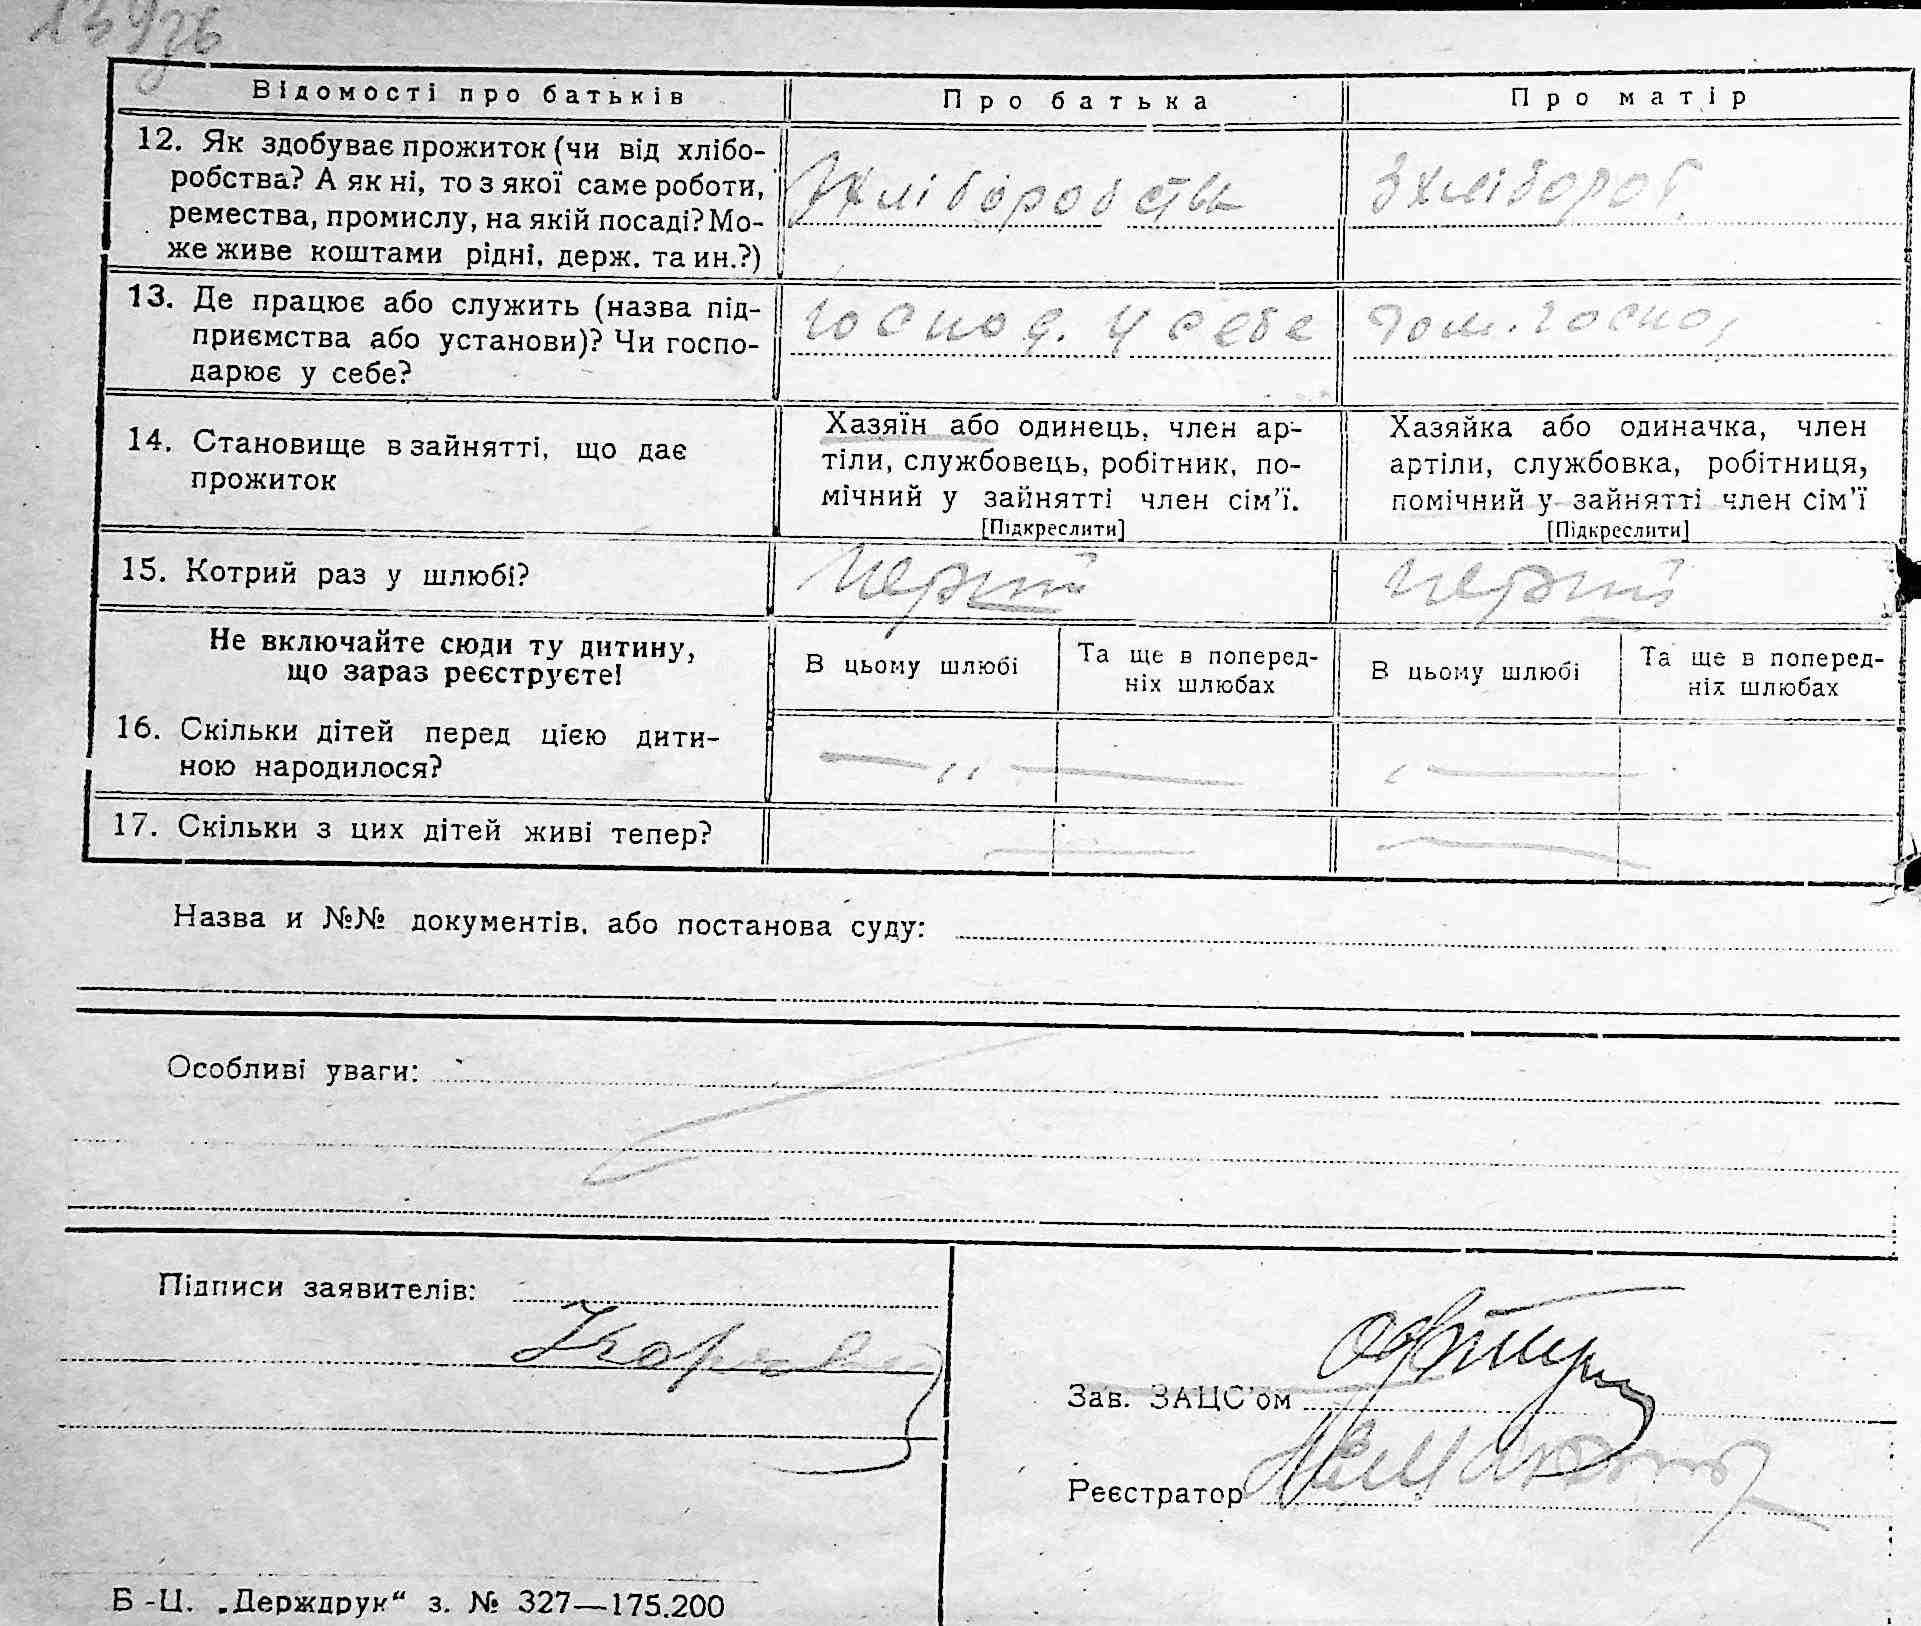 139зв
Відомості про батьків
Про батька
Про матір
12. Як здобуває прожиток (чи від хлібо-
робства? А як ні, то з якої саме роботи,
ремества, промислу, на якій посаді? Мо-
же живе коштами рідні, держ. та ин.?)
Зхліборобства
Зхлібороб.
13. Де працює або служить (назва під-
приємства або установи)? Чи госпо-
дарює у себе?
Госпоd. у себе
Дом. госпо,
14. Становище в зайнятті, що дає
прожиток
Хазяїн або одинець, член ар-
тіли, службовець, робітник, по-
мічний у зайнятті член сім'ї.
[Підкреслити]
Хазяйка або одиначка, член
артіли, службовка, робітниця,
помічний у зайнятті член сім'ї
[Підкреслити]
15. Котрий раз у шлюбі?
перший
перший
Не включайте сюди ту дитину,
що зараз реєструєте!
В цьому шлюбі
Та ще в поперед-
ніх шлюбах
В цьому шлюбі
Та ще в поперед-
ніх шлюбах
16. Скільки дітей перед цією дити-
ною народилося?
— „ —
17. Скільки з цих дітей живі тепер?
Назва и №№ документів, або постанова суду:
Особливі уваги:
Підписи заявителів:
Зав. ЗАЦС'ом
Реєстратор
Б-Ц. „Держдрук“ з. № 327—175.200